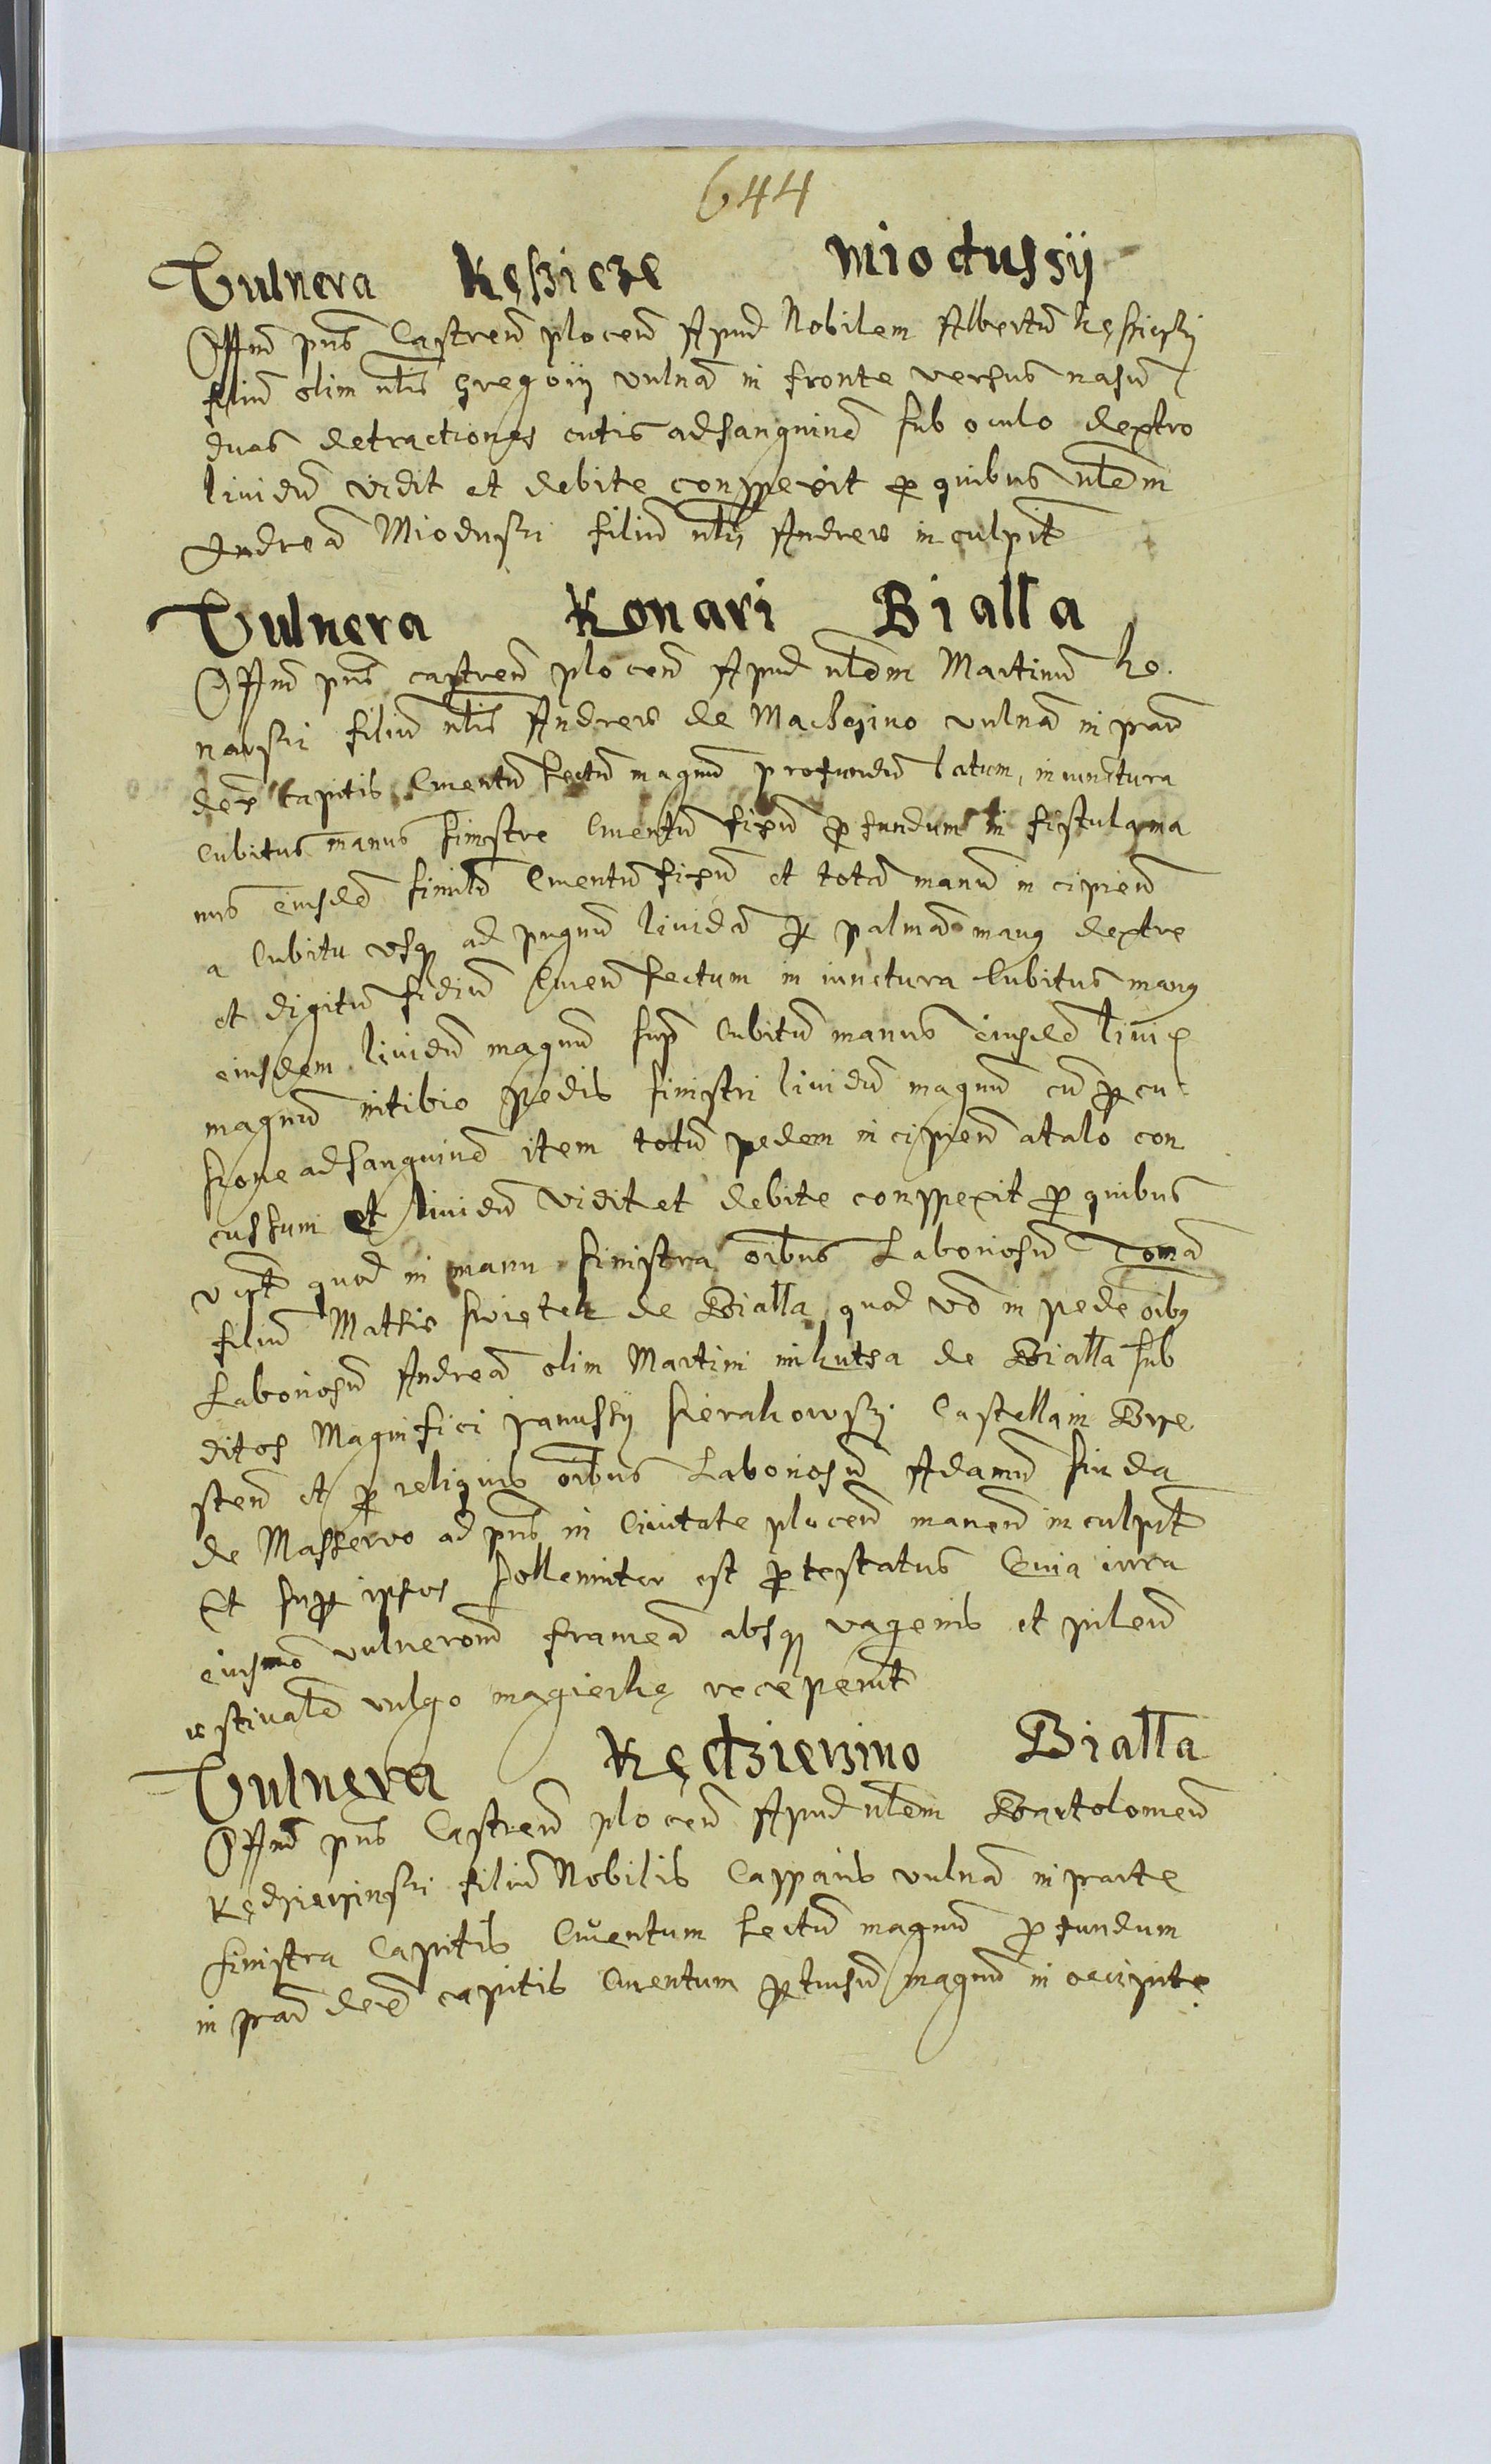 644
Vulnera Kęssicze Miodussij
Offm pns Castren plocen Apud Nobilem Albertu Kęssiczki
filiu olim nlis gregorij vulna in fronte versus nasu
duas detractiones cutis ad sanguine sub oculo dextro
liuidu vidit et debite conspexit p quibus nlem
Andrea Mioduski filiu nlis Andree inculpit
Vulnera Konari Bialla
Offm pns castren plocen Apud nlem Martinu Ko
narski filiu nlis Andree de Machczino vulna in par
dex capitis Cruentu sectu magnu profundu latum, in iunctura
Cubitus manus sinistre Cruentu fixu pfundum in fistula ma
nus eiusde similr Cruentu fixu et tota manu incipien
a Cubitu vsq ad pugnu liuida p palma manus dextre
et digitu scdm Cruen sectum in iunctura Cubitus manus
eiusdem liuidu magnu sup Cubitu manus eiusde liuid
magnu in tibio pedis sinistri liuidu magnu cu pcu
sione ad sanguine item totu pedem incipien a talo con
cussum et liuidu vidit et debite conspexit p quibus
vt quod in manu sinistra oibus Laboriosu Toma
filiu Mathie swietek de Bialla quod vo in pede oibus
Laboriosu Andrea olim Martini mikutha de Bialla sub
ditos Magnifici janussij sierakowski Castellani Bre
sten et p reliquis oibus Laboriosu Adamu
de Massewo ad pns in Ciuitate plocen manen inculpit
Et sup ipsos sollemniter est ptestatus Quia circa
eiusmo vulneronem framea absq vagenis et pileu
estiuale vulgo magierkę receperunt
Vulnera Kędzierzino Bialla
Offm pns Castren plocen Apud nlem Bartolomeu
Kędzierzinski filiu Nobilis Casparis vulna in parte
sinistra Capitis Cruentum sectu magnu pfundum
in par dex capitis Cruentum ptusu magnu in occipite